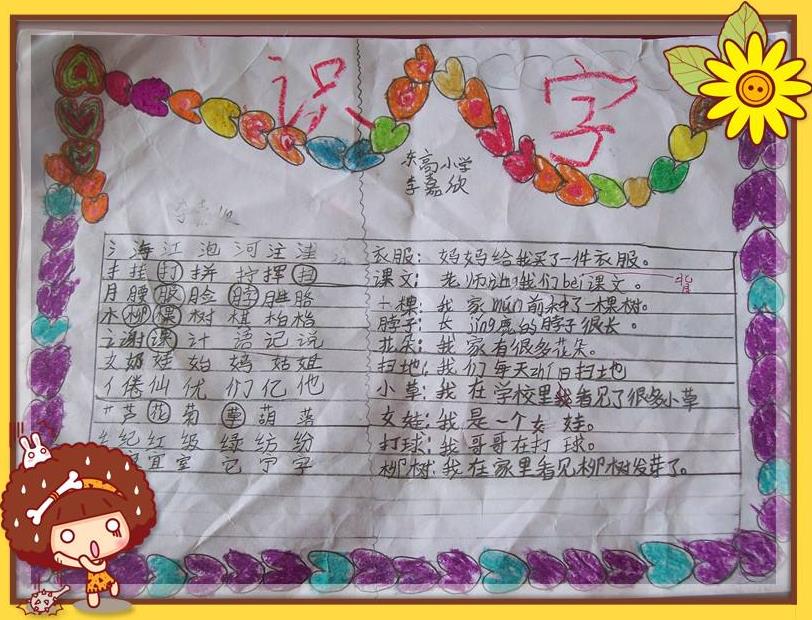 识字
东高小学
李嘉欣
氵海江泡河注洼
扌挂打拼拧挥扫
月腰服脸脖胜胳
木柳棵树棋柏
讠谢课计请记说
女奶娃始妈姑姐
亻倦仙优们亿他
艹花菊草葫落
纟纪红级绿纺纷
宜室它字字
衣服：妈妈给我买了一件衣服。
课文：老师让我们bèi课文。
背
一棵：我家mén前种了一棵树。
脖子：长jǐng鹿的脖子很长。
花朵：我家有很多花朵。
扫地：我们每天zhí日扫地
小草：我在学校里看见了很多小草
女娃：我是一个女娃。
打球：我哥哥在打球。
柳树：我在家里看见柳树发芽了。